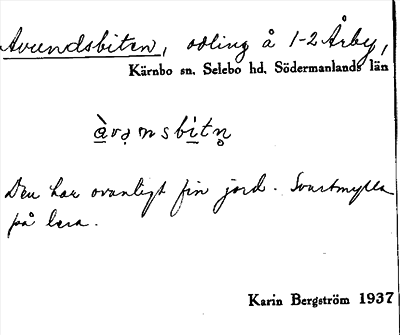 Avundsbiten, odling å 1-2 Årby,
Kärnbo sn. Selebo hd. Södermanlands län
àvənsbitn̥
Den har ovanligt fin jord. Svartmylla
på lera.
Karin Bergström 1937